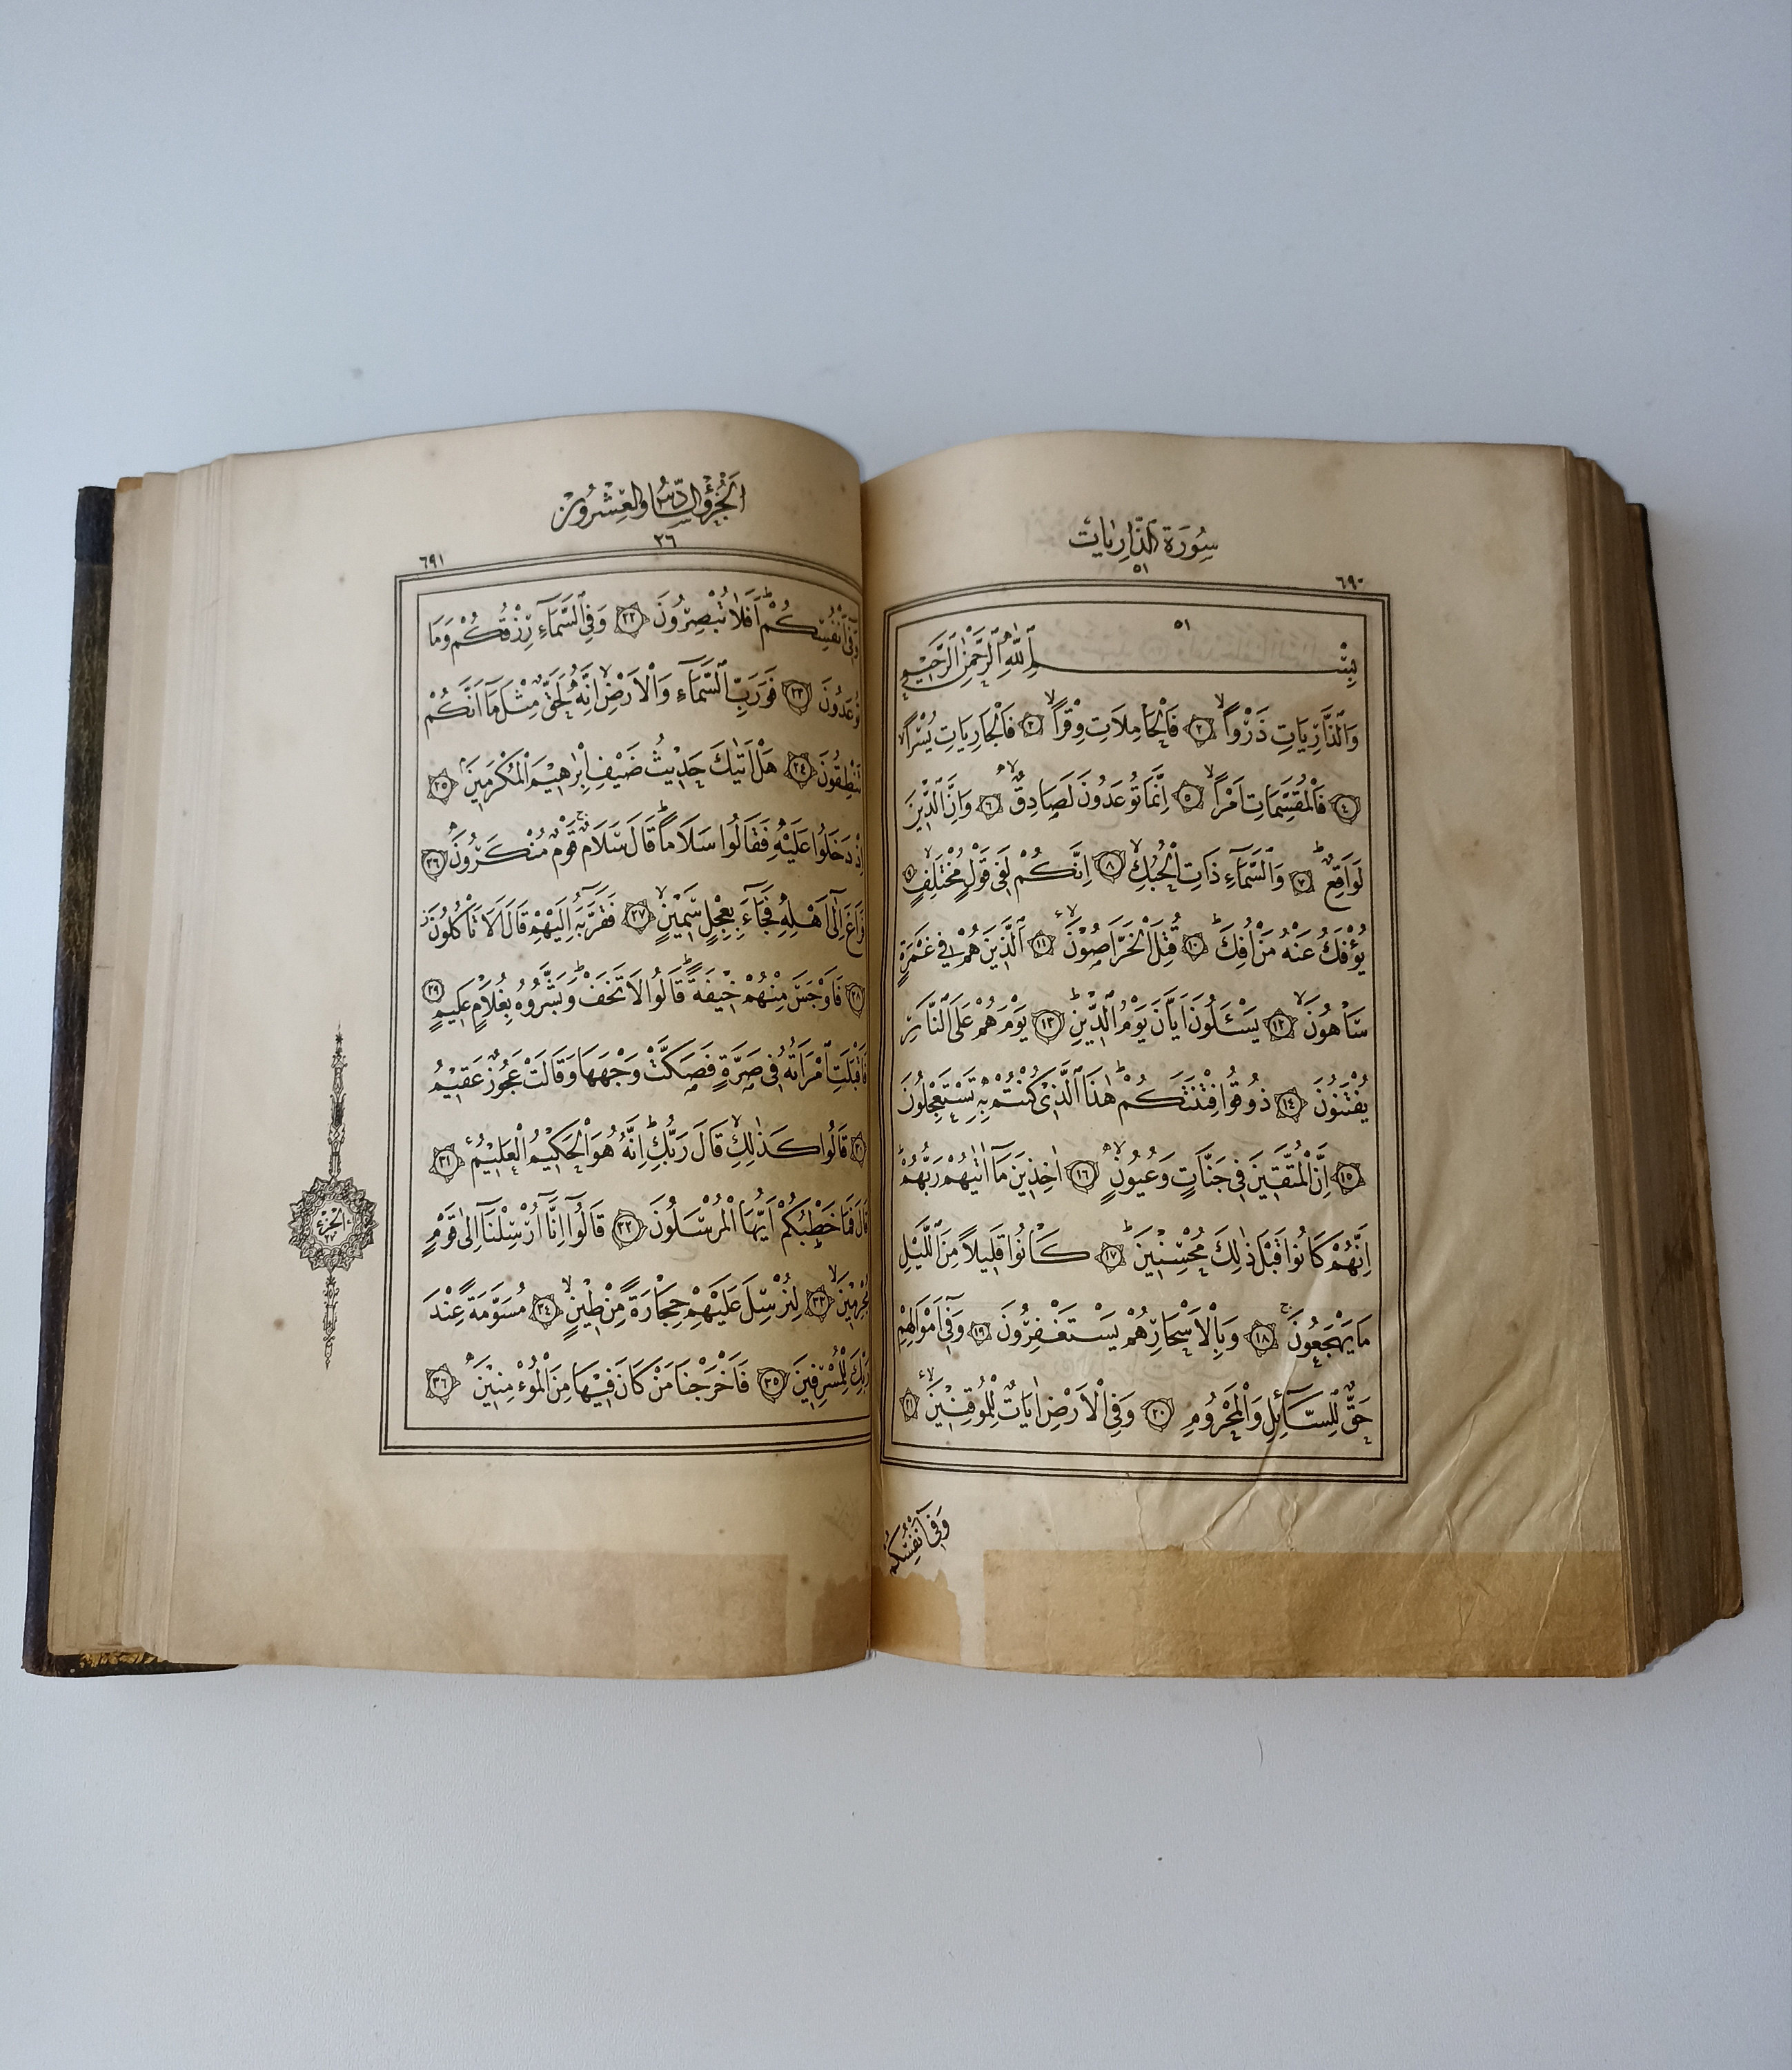 سُورَةُ الذَّارِيَاتِ
٥١
٦٩٠
٥١
بِسْمِ اللّٰهِ الرَّحْمٰنِ الرَّحِيمِ
وَالذَّارِيَاتِ ذَرْواً ﴿٢﴾ فَالْحَامِلَاتِ وِقْراً ﴿٣﴾ فَالْجَارِيَاتِ يُسْراً
﴿٤﴾ فَالْمُقَسِّمَاتِ اَمْراً ﴿٥﴾ اِنَّمَا تُوعَدُونَ لَصَادِقٌ ﴿٦﴾ وَاِنَّ الدِّينَ
لَوَاقِعٌ ﴿٧﴾ وَالسَّمَآءِ ذَاتِ الْحُبُكِ ﴿٨﴾ اِنَّكُمْ لَفِى قَوْلٍ مُخْتَلِفٍ ﴿٩﴾
يُؤْفَكُ عَنْهُ مَنْ اُفِكَ ﴿١٠﴾ قُتِلَ الْخَرَّاصُونَ ﴿١١﴾ اَلَّذِينَ هُمْ فِى غَمْرَةٍ
سَاهُونَ ﴿١٢﴾ يَسْـَٔلُونَ اَيَّانَ يَوْمُ الدِّينِ ﴿١٣﴾ يَوْمَ هُمْ عَلَى النَّارِ
يُفْتَنُونَ ﴿١٤﴾ ذُوقُوا فِتْنَتَكُمْ هٰذَا الَّذِى كُنْتُمْ بِهِ تَسْتَعْجِلُونَ
﴿١٥﴾ اِنَّ الْمُتَّقِينَ فِى جَنَّاتٍ وَعُيُونٍ ﴿١٦﴾ اٰخِذِينَ مَآ اٰتٰيهُمْ رَبُّهُمْ
اِنَّهُمْ كَانُوا قَبْلَ ذٰلِكَ مُحْسِنِينَ ﴿١٧﴾ كَانُوا قَلِيلاً مِنَ اللَّيْلِ
مَا يَهْجَعُونَ ﴿١٨﴾ وَبِالْاَسْحَارِ هُمْ يَسْتَغْفِرُونَ ﴿١٩﴾ وَفِىٓ اَمْوَالِهِمْ
حَقٌّ لِلسَّآئِلِ وَالْمَحْرُومِ ﴿٢٠﴾ وَفِى الْاَرْضِ اٰيَاتٌ لِلْمُوقِنِينَ ﴿٢١﴾
وَفِىٓ اَنْفُسِكُمْ
اَلْجُزْؤُ السَّادِسُ وَالْعِشْرُونَ
٢٦
٦٩١
وَفِىٓ اَنْفُسِكُمْ اَفَلَا تُبْصِرُونَ ﴿٢٢﴾ وَفِى السَّمَآءِ رِزْقُكُمْ وَمَا
تُوعَدُونَ ﴿٢٣﴾ فَوَرَبِّ السَّمَآءِ وَالْاَرْضِ اِنَّهُ لَحَقٌّ مِثْلَ مَآ اَنَّكُمْ
تَنْطِقُونَ ﴿٢٤﴾ هَلْ اَتٰيكَ حَدِيثُ ضَيْفِ اِبْرٰهِيمَ الْمُكْرَمِينَ ﴿٢٥﴾
اِذْ دَخَلُوا عَلَيْهِ فَقَالُوا سَلَاماً قَالَ سَلَامٌ قَوْمٌ مُنْكَرُونَ ﴿٢٦﴾
فَرَاغَ اِلٰىٓ اَهْلِهِ فَجَآءَ بِعِجْلٍ سَمِينٍ ﴿٢٧﴾ فَقَرَّبَهُٓ اِلَيْهِمْ قَالَ اَلَا تَأْكُلُونَ
﴿٢٨﴾ فَاَوْجَسَ مِنْهُمْ خِيفَةً قَالُوا لَا تَخَفْ وَبَشَّرُوهُ بِغُلَامٍ عَلِيمٍ ﴿٢٩﴾
فَاَقْبَلَتِ امْرَاَتُهُ فِى صَرَّةٍ فَصَكَّتْ وَجْهَهَا وَقَالَتْ عَجُوزٌ عَقِيمٌ
﴿٣٠﴾ قَالُوا كَذٰلِكِ قَالَ رَبُّكِ اِنَّهُ هُوَ الْحَكِيمُ الْعَلِيمُ ﴿٣١﴾
قَالَ فَمَا خَطْبُكُمْ اَيُّهَا الْمُرْسَلُونَ ﴿٣٢﴾ قَالُوٓا اِنَّآ اُرْسِلْنَآ اِلٰى قَوْمٍ
مُجْرِمِينَ ﴿٣٣﴾ لِنُرْسِلَ عَلَيْهِمْ حِجَارَةً مِنْ طِينٍ ﴿٣٤﴾ مُسَوَّمَةً عِنْدَ
رَبِّكَ لِلْمُسْرِفِينَ ﴿٣٥﴾ فَاَخْرَجْنَا مَنْ كَانَ فِيهَا مِنَ الْمُؤْمِنِينَ ﴿٣٦﴾
اَلْجُزْءُ
٢٧